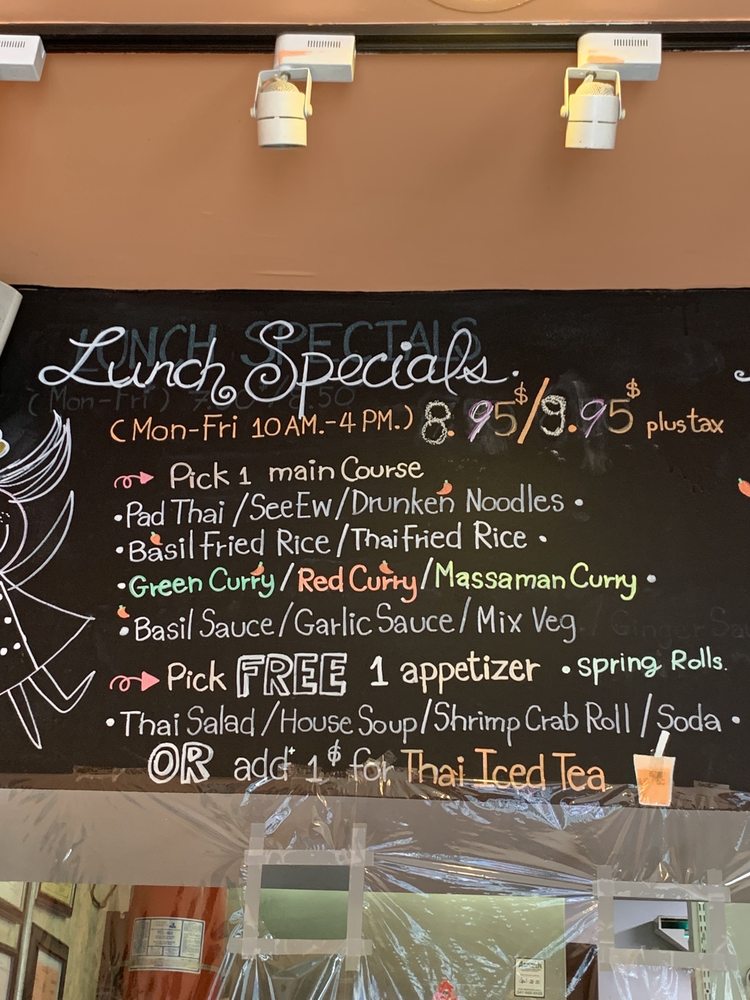 LUNCH SPECIALS
Lunch Specials.
(Mon-Fri)
(Mon-Fri 10 AM.-4 PM.) 8.95$/9.95$ plus tax
Pick 1 main Course
•Pad Thai/SeeEw/Drunken Noodles •
•Basil Fried Rice/Thai Fried Rice •
•Green Curry/Red Curry/Massaman Curry •
•Basil Sauce/Garlic Sauce/Mix Veg
Pick FREE 1 appetizer •Spring Rolls.
•Thai Salad/House Soup/Shrimp Crab Roll/Soda •
OR add 1$ for Thai Iced Tea